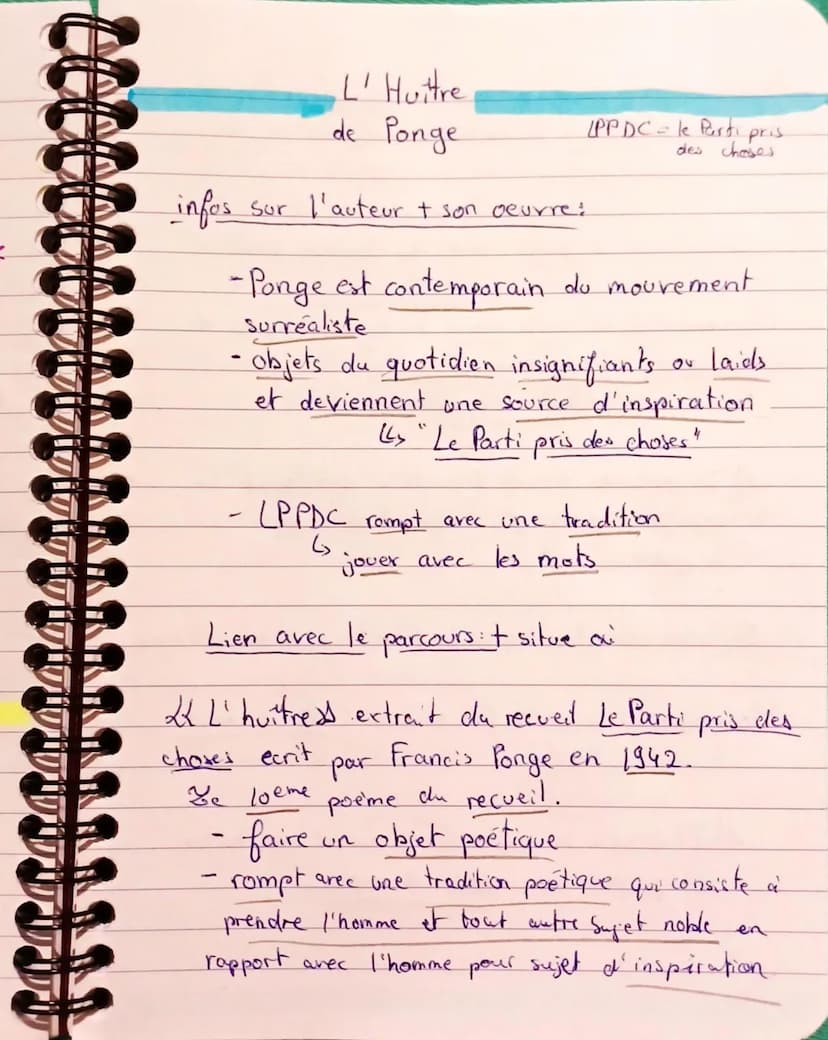 L' Huître
de Ponge
LPPDC = le Parti pris
des choses
infos sur l'auteur + son oeuvre:
- Ponge est contemporain du mouvement
surréaliste
- objets du quotidien insignifiants ou laids
et deviennent une source d'inspiration
↳ "Le Parti pris des choses"
- LPPDC rompt avec une tradition
↳ jouer avec les mots
Lien avec le parcours: + situe où
« L'huître » extrait du recueil Le Parti pris des
choses ecrit par Francis Ponge en 1942.
Le 10eme poème du recueil.
- faire un objet poétique
- rompt avec une tradition poétique qui consiste à
prendre l'homme et tout autre sujet noble en
rapport avec l'homme pour sujet d'inspiration